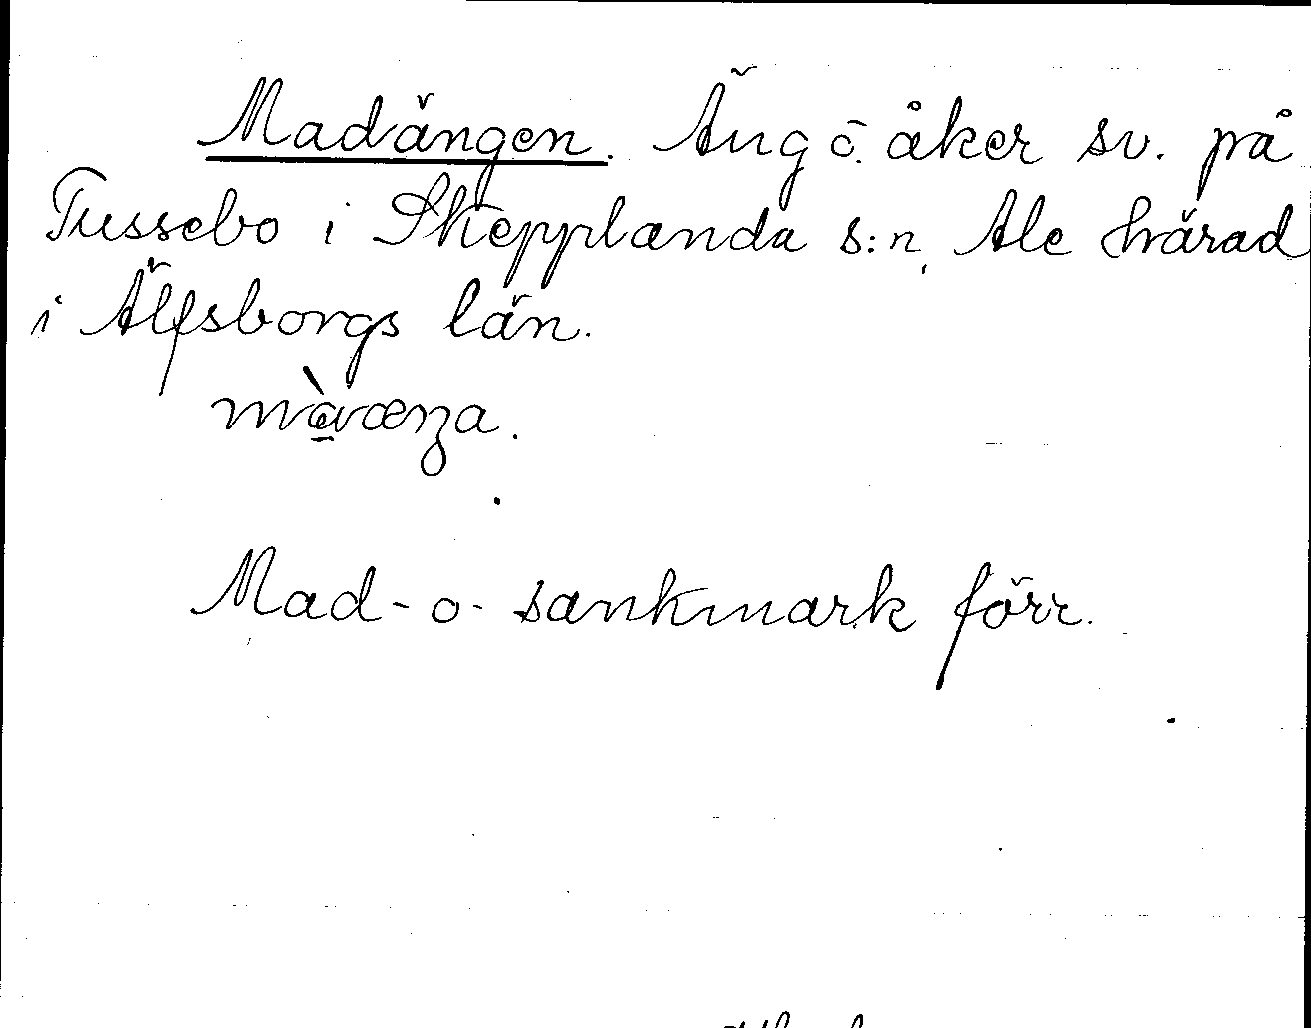 Madängen. Äng o. åker sv. på
Tussebo i Skepplanda s:n, Ale härad
i Älfsborgs län.
màvæŋa.
Mad- o- sankmark förr.